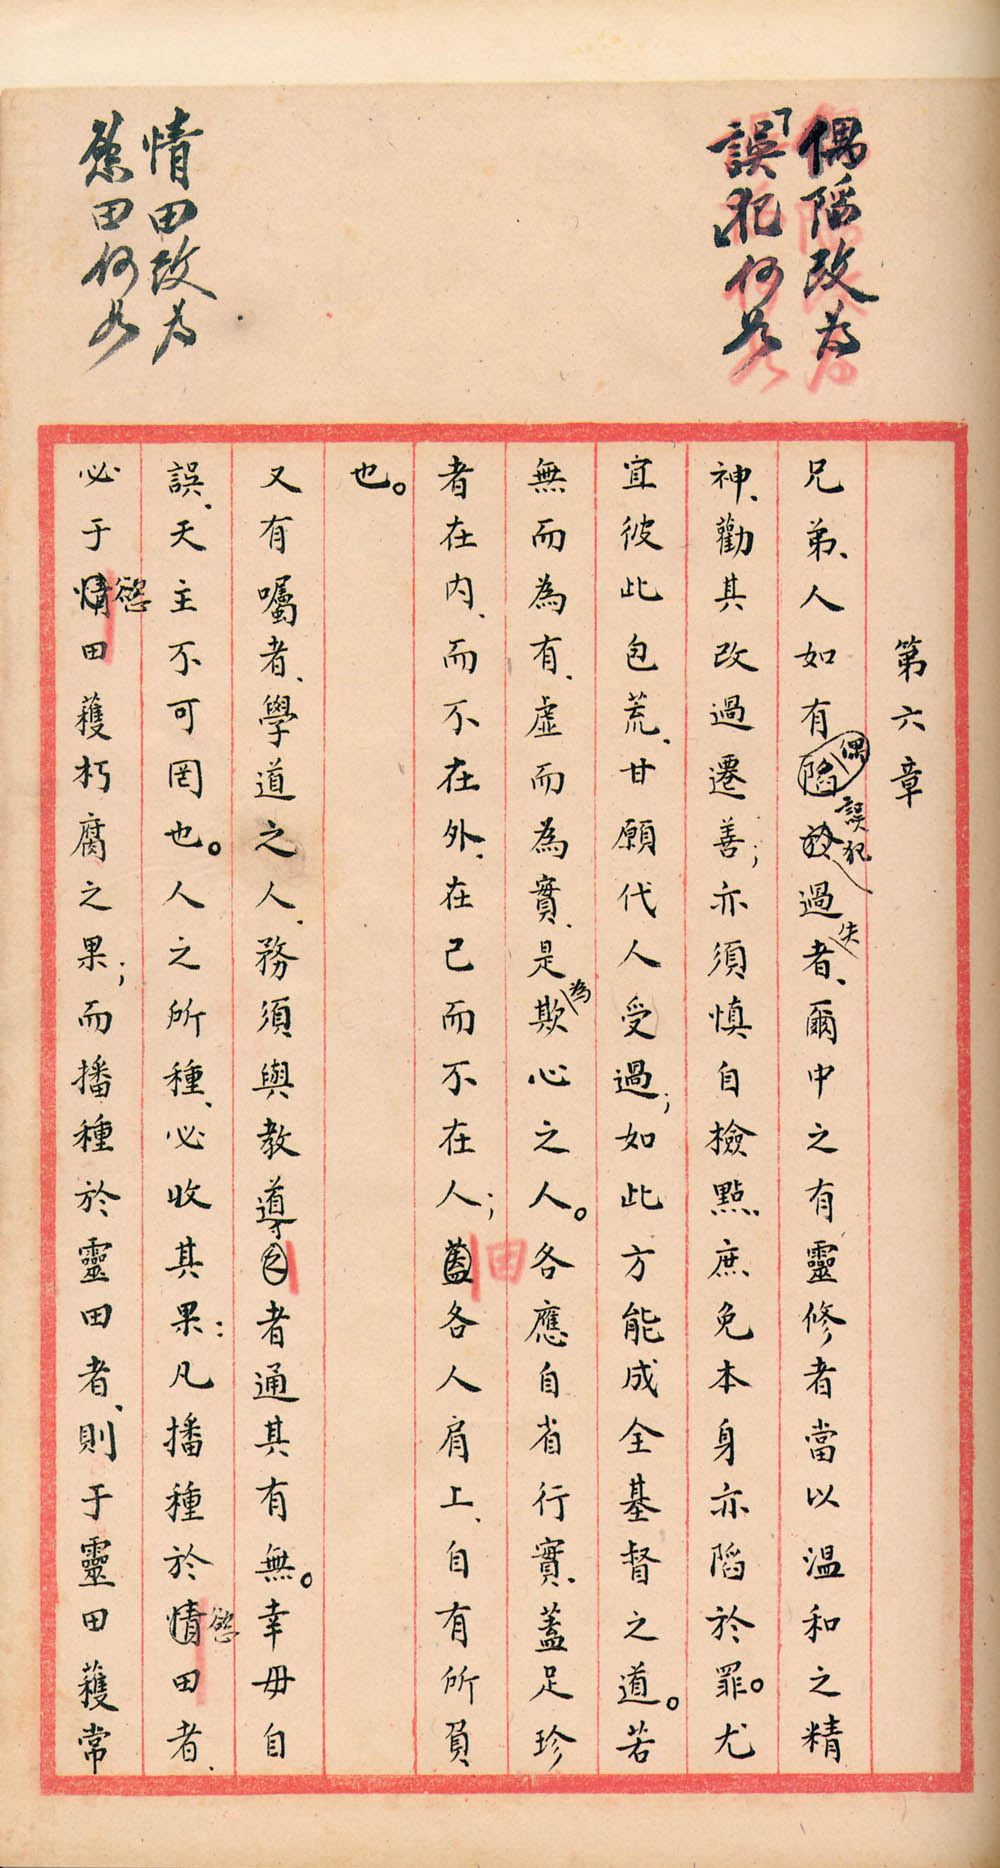 偶陷改為
「誤犯」何如
情田改為
慾田何如
第六章
兄弟、人如有偶陷於誤犯過失者、爾中之有靈修者當以温和之精
神、勸其改過遷善；亦須慎自檢點、庶免本身亦陷於罪。尤
宜彼此包荒、甘願代人受過；如此方能成全基督之道。若
無而為有、虛而為實、是為欺心之人。各應自省行實、蓋足珍
者在内、而不在外、在己而不在人；蓋各人肩上、自有所負
也。
又有囑者、學道之人、務須與教導之者通其有無。幸毋自
誤、天主不可罔也。人之所種、必收其果：凡播種於情慾田者、
必于情慾田穫朽腐之果；而播種於靈田者、則于靈田穫常